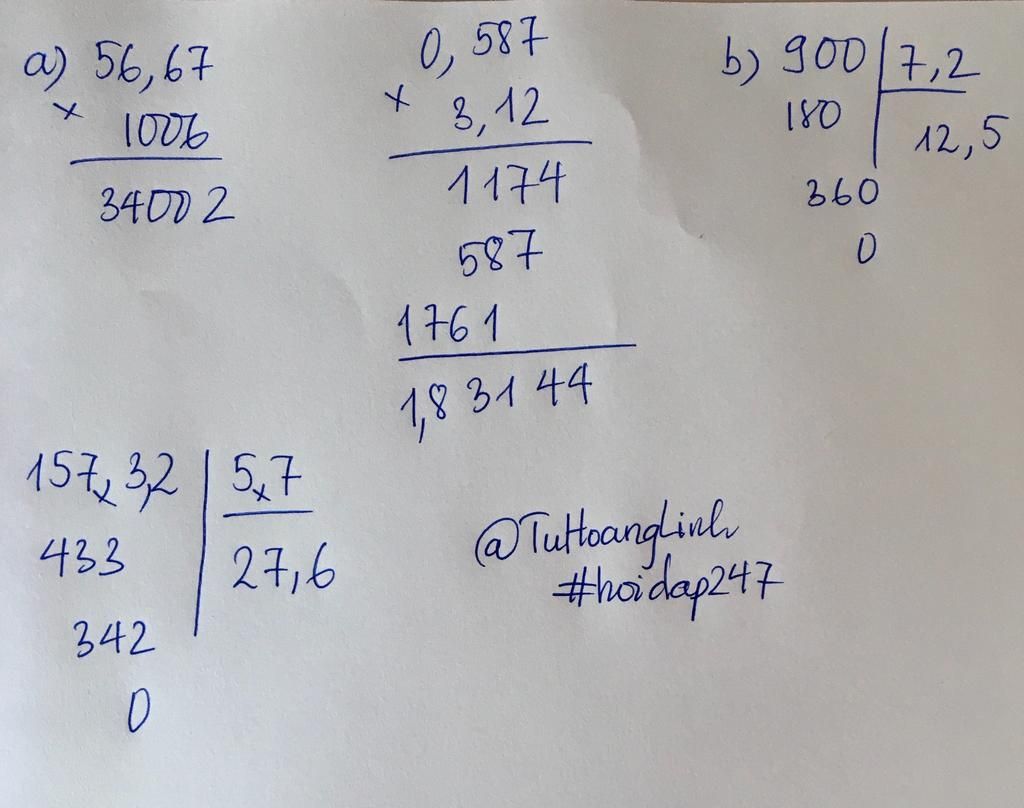 a) 56,67
x 1006
34002
0,587
x 3,12
1174
587
1761
1,83144
b) 900 7,2
180 12,5
360
0
157,3,2 5,7
433 27,6
342
0
@TuHoangLinh
#hoidap247